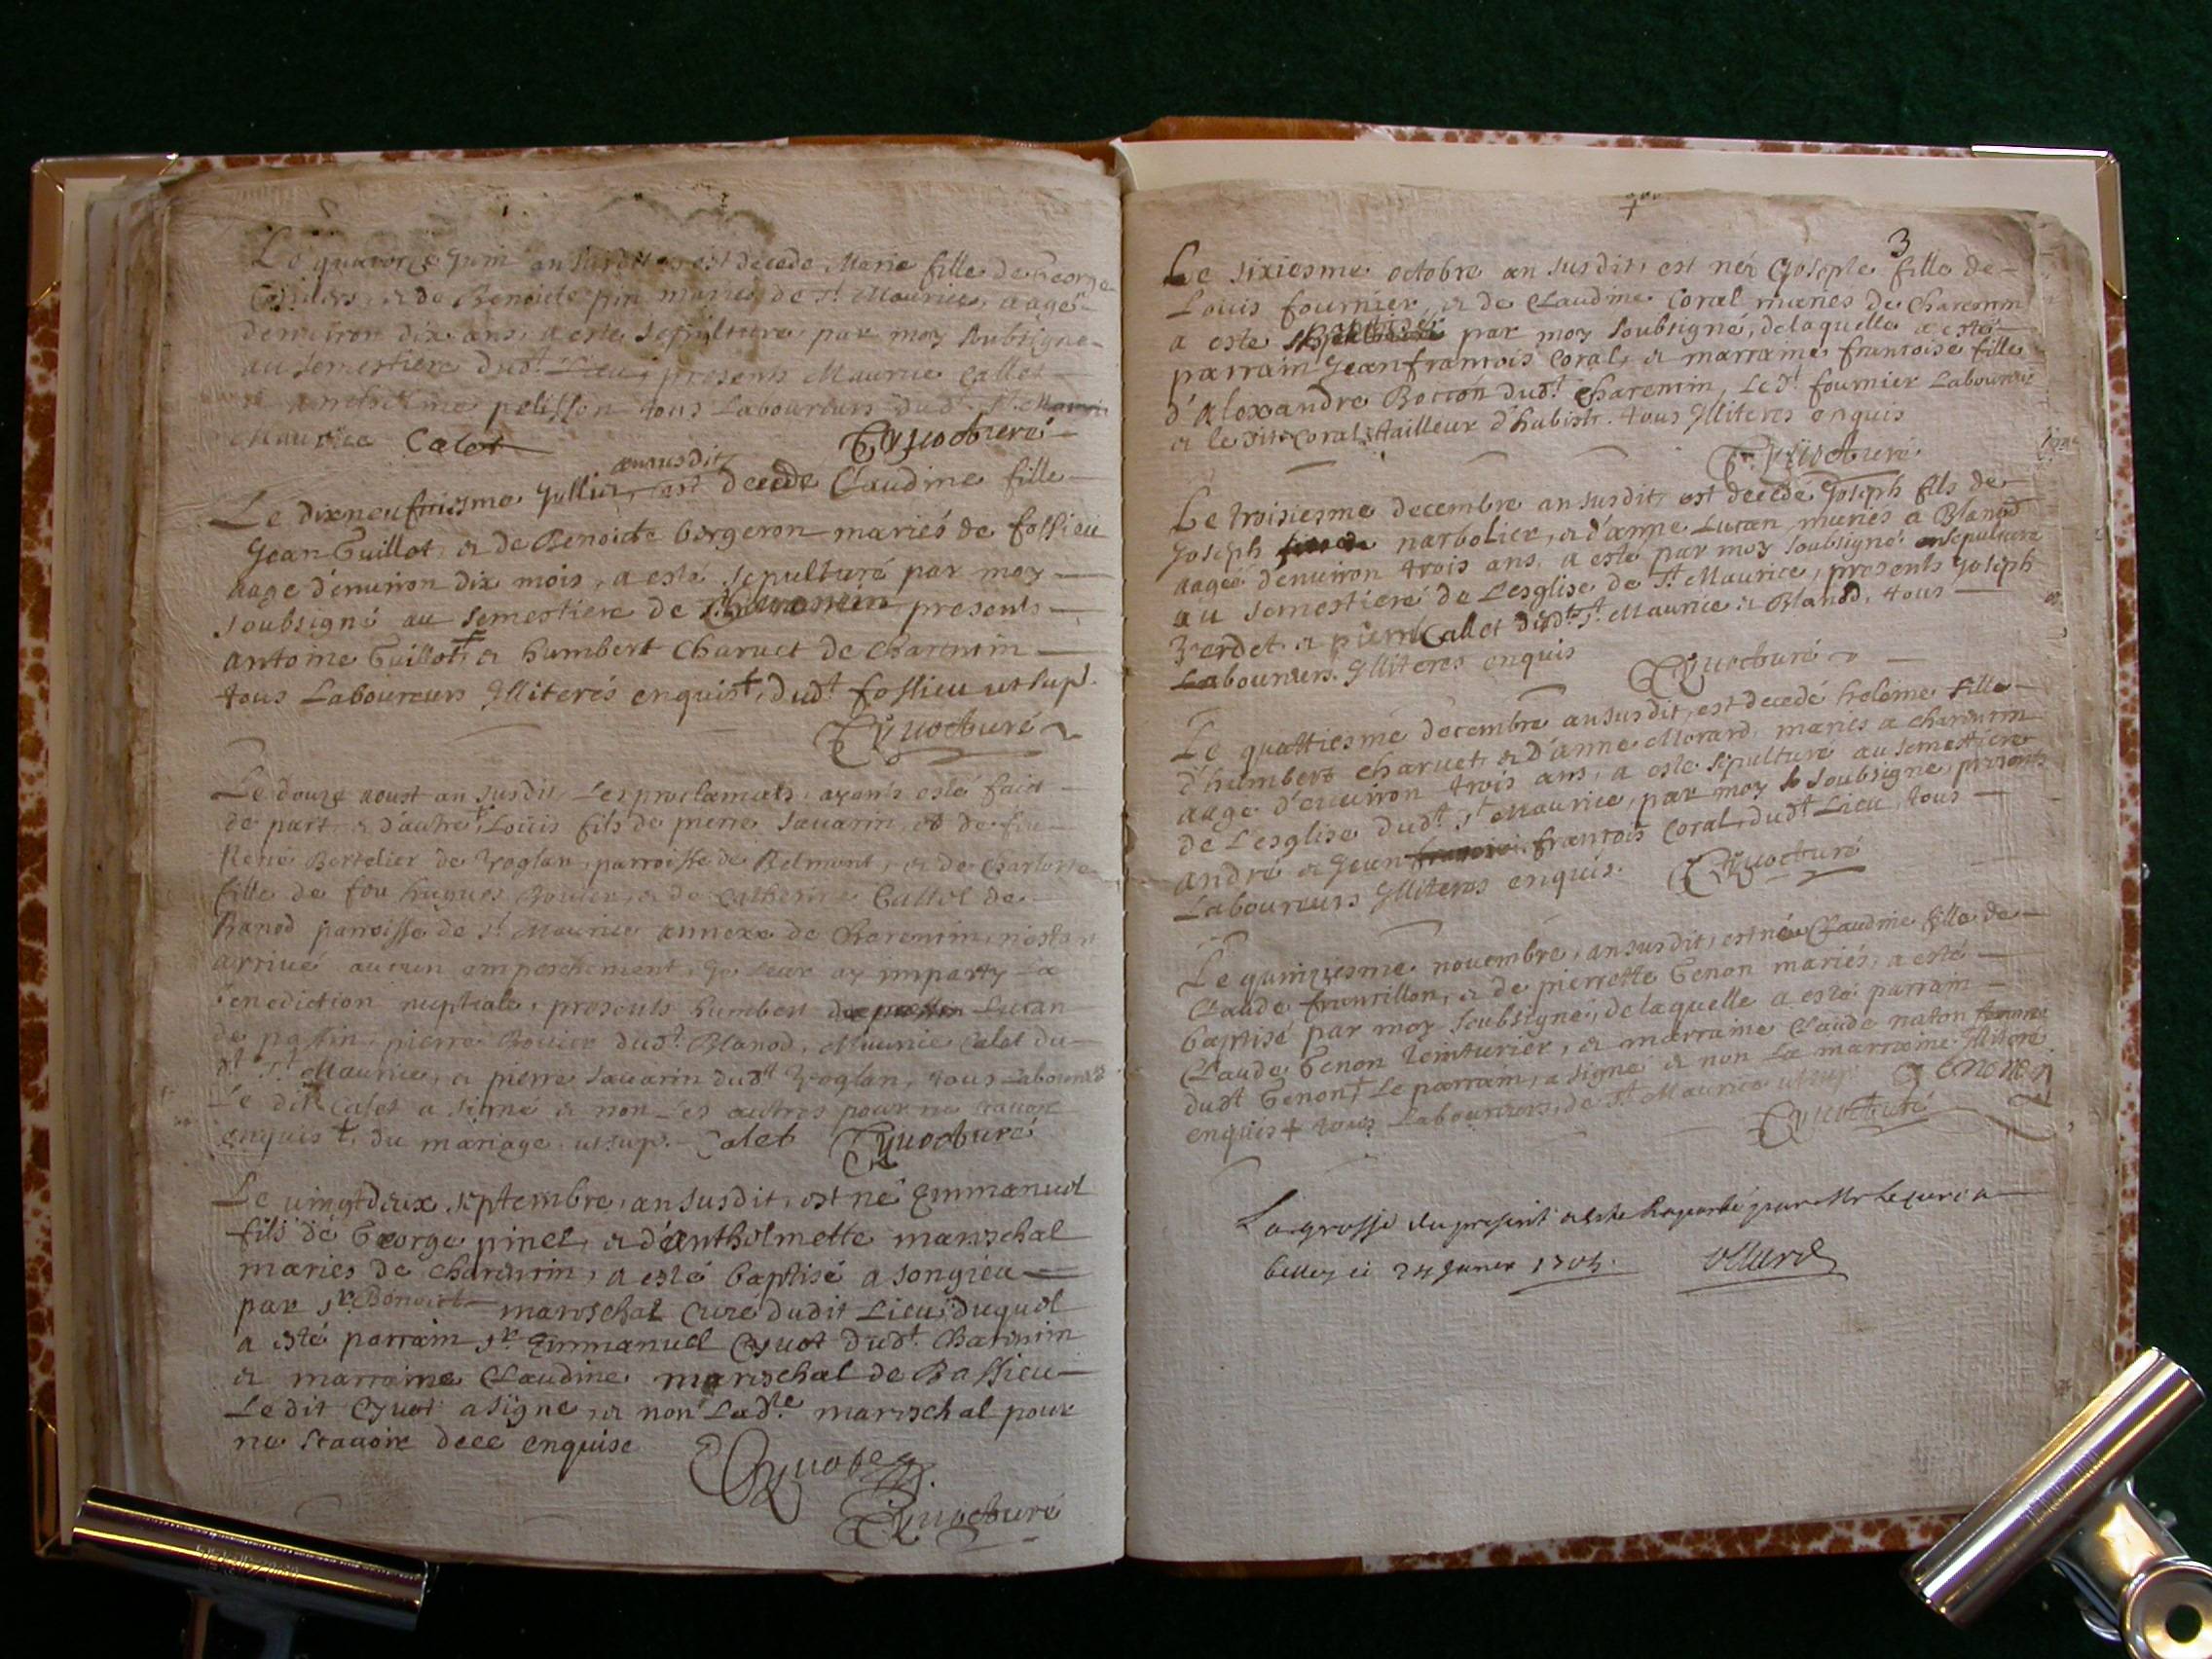 Le quatorze Juin an susdit est decede Marie fille de George
et de Benoite pin mariés de St. Maurice aagé
denuiron dix ans, a esté sepulturé par moy soubsigné
au semestiere dudt. Lieu, presents Maurice Callet
pelisson tous Laboureurs dudt. St.
Maurice Calet Cyuot curé
an susdit
Le dixneufuiesme Jullier, est decede Claudine fille
Jean Guillot, & de Benoite bergeron mariés de fossieu
aage d'enuiron dix mois, a esté sepulturé par moy
soubsigné au semestiere de presents
antoine Guillot & humbert Charuet de Charencin
tous Laboureurs Illiterés enquis, dudt. fossieu ut sup.
Cyuot curé
Le douze aoust an susdit, Les proclamats ayants esté fait
de part & d'autre, Loüis fils de pierre sauarin, et de feu
René Bertelier de Voglan, parroisse de Belmont, & de Charlotte
fille de feu hugues Bouier & de Catherine Callot de
Blanod parroisse de St. Maurice annexe de Charencin, n'estant
arriué aucun empeschement, Je leur ay imparty La
benediction nuptiale, presents humbert Luran
de passin, pierre Bouier dudt. Blanod, Maurice Calet du
dt. St. Maurice, & pierre sauarin dudt. Voglan, tous Laboureurs
Le dit Calet a signé & non Les autres pour ne scauoir
enquis, du mariage, ut sup. Calet Cyuot curé
Le uingtdeux septembre, an susdit, est né Emmanuel
fils de George pinel, & d'anthelmette marischal
mariés de Charencin, a esté baptisé a songieu
par sr. Benoict marischal Curé dudit Lieu, duquel
a esté parrain sr. Emmanuel Cyuot dudt. Charencin
& marraine Claudine marischal de Bassieu
Le dit Cyuot a signe, & non Ladte. marischal pour
ne scauoir de ce enquise
Cyuot
Cyuot curé
3
Le sixiesme octobre an susdit, est née Josephe fille de
Louis fournier, & de Claudine Coral mariés de Charencin
a esté par moy soubsigné, de laquelle a esté
parrain Jean francois Coral, & marraine francoise fille
d'Alexandre Boccon dudt. Charencin, Le dt. fournier Laboureur
& le dit Coral tailleur d'habist. tous Illiteres enquis
Cyuot curé
Le troisiesme decembre an susdit, est decedé Joseph fils de
Joseph narbolier, & d'anne Luran mariés a Blanod
aagéé denuiron trois ans, a esté par moy soubsigné ensepulturé
au semestiere de Lesglise de St. Maurice, presents Joseph
Verdet & pierre Callet dudt. St. Maurice & Blanod, tous
Laboureurs. Illiteres enquis Cyuot curé
Le quattriesme decembre an susdit, est decedé heleine fille
d'humbert Charuet, & d'anne Morard, mariés a Charencin
aage d'enuiron trois ans, a esté sepulturé au semestiere
de Lesglise dudt. St. Maurice, par moy soubsigne, presents
andré & Jean francois Coral, dudt. Lieu, tous
Laboureurs Illiteres enquis. Cyuot curé
Le quinziesme nouembre, an susdit, est née Claudine fille de
Claude & de pierrette Genon mariés, a esté
baptisé par moy soubsigné, de laquelle a esté parrain
Claude Genon teinturier, & marraine Claude naton femme
dudt Genon Le parrain, a signé & non La marraine Illiteré
enquis tous Laboureurs, de St. Maurice ut sup. Genon
Cyuot curé
La grosse du present a esté raportée par Mr Le curé a
belley ce 24 Januier